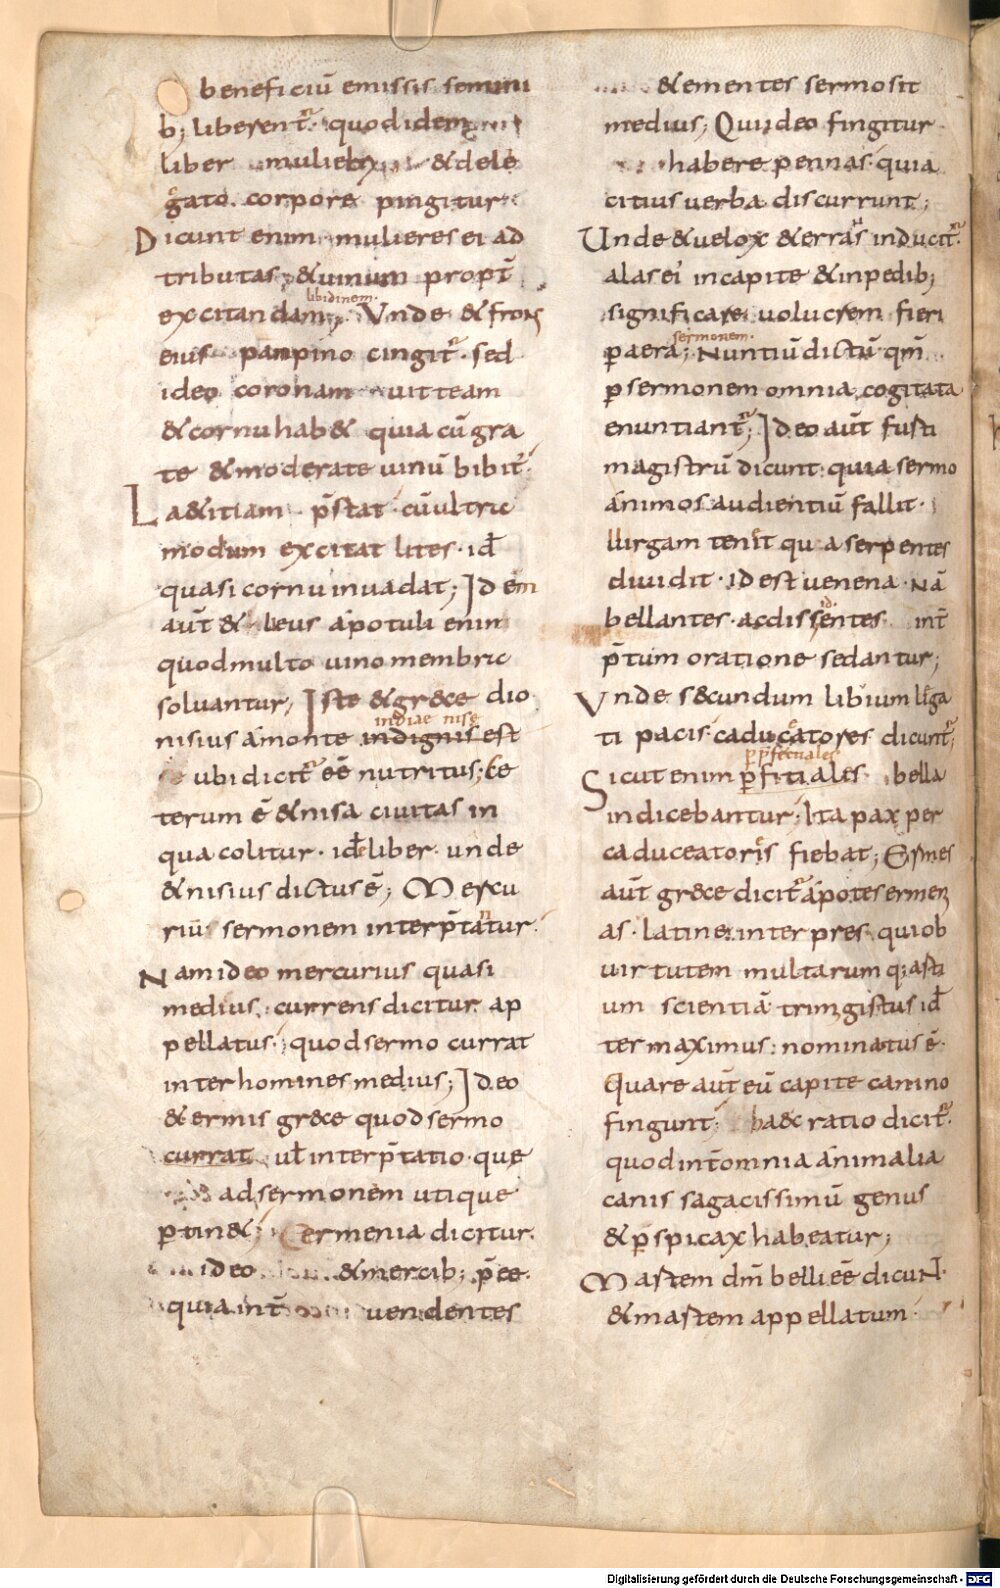 beneficiū emissis semini
b; liberent᷑ quod idem
liber muliebri & dele
gato corpore pingitur
Dicunt enim mulieres ei ad
tributas & uinum propt̄
libidinem
excitandam; Vnde & frons
eius panpino cingit᷑ sed
ideo coronam uitteam
& cornu hab& quia cū gra
te & moderate uinū bibit᷑
La&itiam p̄stat cū ultra
modum excitat lites · id̄
quasi cornu inuadat; Idem
aut̄ & leus apotuli enim
quod multo uino membra
soluantur; Iste & gr&ce dio
indiae nise
nisius a monte indignis est
ubi dicit᷑ eē nutritus; Ce
terum ē & nisa ciuitas in
qua colitur · id̄ liber unde
& nisius dictus ē; Mercu
riū sermonem interp̄tantur
Nam ideo mercurius quasi
medius currens dicitur ap
pellatus · quod sermo currat
inter homines medius; Ideo
& ermis gr&ce quod sermo
currat ul̄ interp̄tatio que
ad sermonem utique
ptin&; ermenia dicitur
ideo & mercib; p̄ee
quia int̄ uendentes
& ementes sermo sit
medius; Qui ideo fingitur
habere pennas quia
citius uerba discurrunt;
Unde & uelox & errans inducit᷑
alas ei in capite & in pedib;
significare uolucrem fieri
sermonem
p aera; Nuntiū dictū qm̄
p sermonem omnia cogitata
enuntiant᷑; Ideo aut̄ furti
magistrū dicunt quia sermo
animos audientiū fallit
Uirgam tenet qua serpentes
diuidit · id est uenena · Nā
bellantes ac dissidentes int̄
p̄tum oratione sedantur;
Vnde secundum libium lega
ti pacis caduceatores dicunt᷑;
p p̄fetiales
Sicut enim p fitiales bella
indicebantur; Ita pax per
caduceatores fiebat; Ermes
aut̄ gr&ce dicit᷑ apo tes ermen
as · latine inter pres qui ob
uirtutem multarum q; arti
um scientiā trimgistus id̄
ter maximus nominatus ē
Quare aut̄ eū capite canino
fingunt; haec ratio dicit᷑
quod int̄ omnia animalia
canis sagacissimū genus
& pspicax habeatur;
Martem dm̄ belli eē dicunt
& martem appellatum
Digitalisierung gefördert durch die Deutsche Forschungsgemeinschaft - DFG